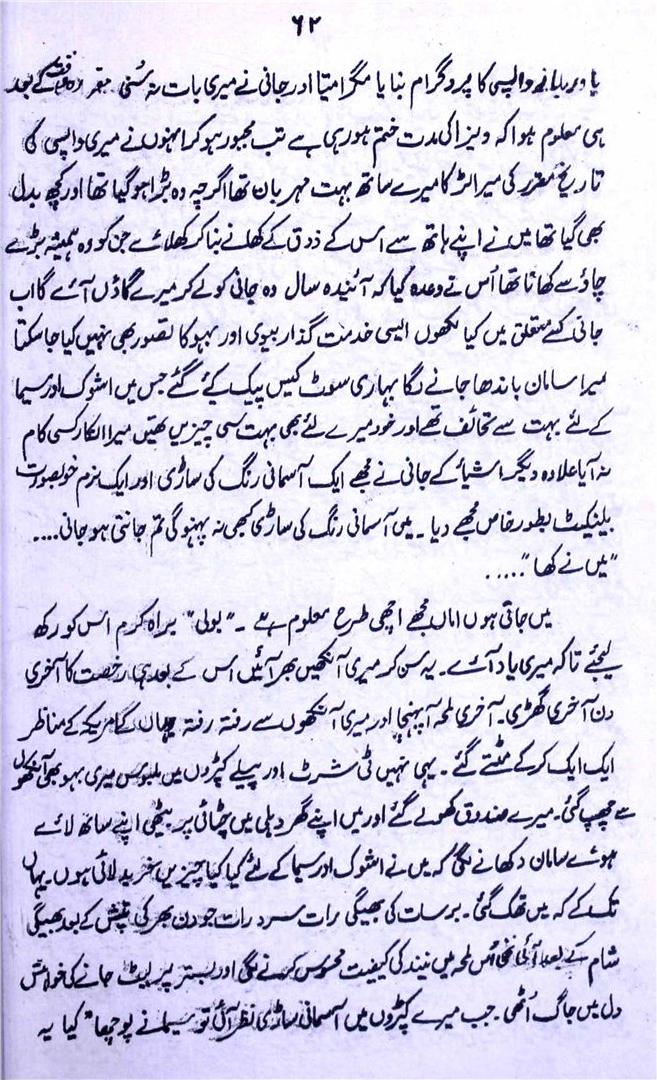 ۶۲
واپسی کا پروگرام بنایا مگر امیتا اور جانی نے میری بات نہ سُنی کے بعد
ہی معلوم ہوا کہ ویزا کی مدت ختم ہو رہی ہے تب مجبور ہو کر انہوں نے میری واپسی کی
تاریخ مقرر کی میرا لڑکا میرے ساتھ بہت مہربان تھا اگرچہ وہ بڑا ہو گیا تھا اور کچھ بدل
بھی گیا تھا میں نے اپنے ہاتھ سے اُس کے ذوق کے کھانے بنا کر کھلائے جن کو وہ ہمیشہ بڑے
چاؤ سے کھاتا تھا اُس نے وعدہ کیا کہ آئندہ سال وہ جانی کو لے کر میرے گاؤں آئے گا اب
جانی کے متعلق میں کیا لکھوں ایسی خدمت گذار بیوی اور بہو کا تصور بھی نہیں کیا جا سکتا
میرا سامان باندھا جانے لگا بھاری سوٹ کیس پیک کئے گئے جس میں اشوک اور سیما
کے لئے بہت سے تحائف تھے اور خود میرے لئے بھی بہت سی چیزیں تھیں میرا انکار کسی کام
نہ آیا علاوہ دیگر اشیاء کے جانی نے مجھے ایک آسمانی رنگ کی ساڑی اور ایک نرم خوبصورت
بلینکٹ بطور خاص مجھے دیا۔ میں آسمانی رنگ کی ساڑی کبھی نہ پہنوں گی تم جانتی ہو جانی....
"میں نے کھا"....
میں جاتی ہوں اماں مجھے اچھی طرح معلوم ہے۔ "بولی" براہ کرم اس کو رکھ
لیجئے تاکہ میری یاد آئے۔ یہ سن کر میری آنکھیں بھر آئیں اس کے بعد رخصت کا آخری
دن آخری گھڑی۔ آخری لمحہ آپہنچا اور میری آنکھوں سے رفتہ رفتہ امریکہ کے مناظر
ایک ایک کر کے مٹتے گئے۔ یہی نہیں ٹی شرٹ اور پیلے کپڑوں میں ملبوس میری بہو بھی آنکھوں
سے چھپ گئی۔ میرے صندوق کھولے گئے اور میں اپنے گھر دہلی میں چٹائی پر بیٹھی اپنے ساتھ لائے
ہوئے سامان دکھانے لگی کہ میں نے اشوک اور سیما کے لئے کیا کیا چیزیں خرید لائی ہوں۔ یہاں
تک کے کہ میں تھک گئی۔ برسات کی بھیگی رات سرد رات جو دن بھر کی تپش کے بعد بھیگی
شام کے بعد آئی تھی اُس لمحہ میں نیند کی کیفیت محسوس کرنے لگی اور بستر پر لیٹ جانے کی خواہش
دل میں جاگ اُٹھی۔ جب میرے کپڑوں میں آسمانی ساڑی نظر آئی تو سیما نے پوچھا "کیا یہ